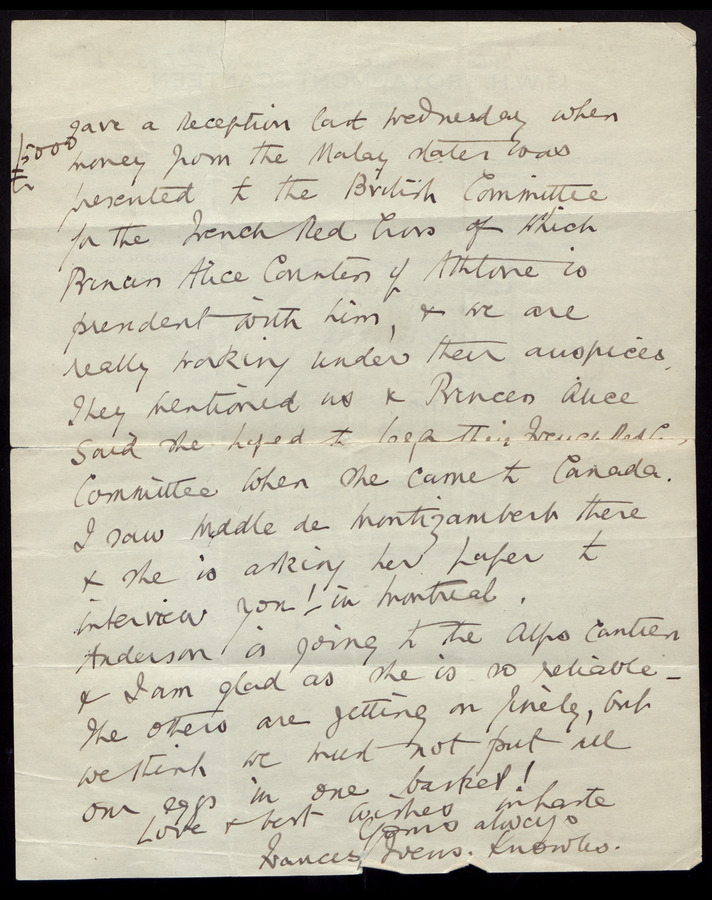 gave a reception last Wednesday when
£5000
money from the Malay states was
presented to the British Committee
for the French Red Cross of which
Princess Alice Countess of Athlone is
president with him, & we are
really working under their auspices.
They mentioned us & Princess Alice
said she hoped to their French Red C.
Committee when she came to Canada.
I saw Mddle de Montizambert there
& she is asking her paper to
interview you! in Montreal.
Anderson is going to the Alps Canteen
& I am glad as she is so reliable –
The others are getting on finely, but
we think we must not put all
our eggs in one basket!
Love & best wishes in haste
Yours always
Frances Ivens. Knowles.